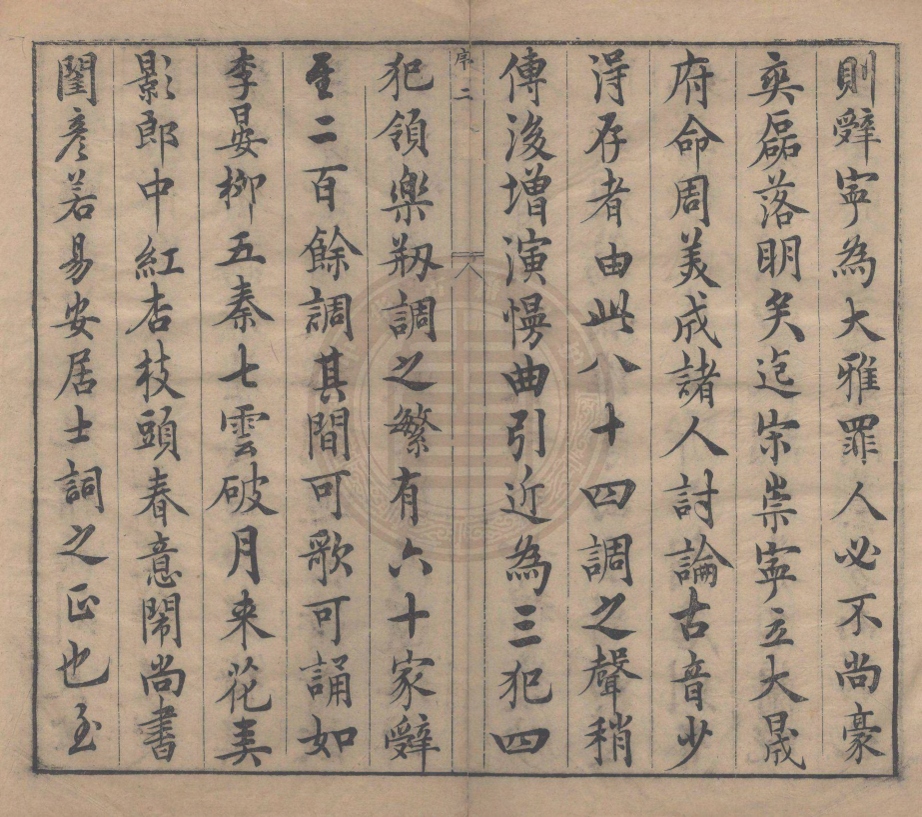 則辤寧為大雅罪人必不尚豪
奭磊落明矣迄宋崇寧立大晟
府命周美成諸人討論古音少
淂存者由此八十四調之聲稍
傳後增演慢曲引近為三犯四
序 二
犯領樂刱調之繁有六十家辤
至二百餘調其間可歌可誦如
李晏柳五秦七雲破月来花弄
影郎中紅杏枝頭春意閙尚書
閨彥若易安居士詞之正也至